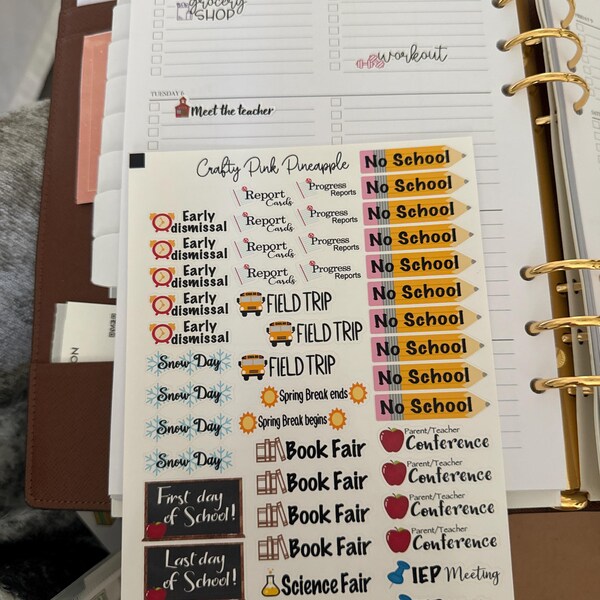 grocery
SHOP
workout
TUESDAY 6
Meet the teacher
Crafty Pink Pineapple
Early
dismissal
Early
dismissal
Early
dismissal
Early
dismissal
Early
dismissal
Snow Day
Snow Day
Snow Day
Snow Day
First day
of School!
Last day
of School!
Report
Cards
Report
Cards
Report
Cards
Report
Cards
Progress
Reports
Progress
Reports
Progress
Reports
Progress
Reports
FIELD TRIP
FIELD TRIP
FIELD TRIP
Spring Break ends
Spring Break begins
Book Fair
Book Fair
Book Fair
Book Fair
Science Fair
No School
No School
No School
No School
No School
No School
No School
No School
No School
No School
Parent/Teacher
Conference
Parent/Teacher
Conference
Parent/Teacher
Conference
Parent/Teacher
Conference
IEP Meeting